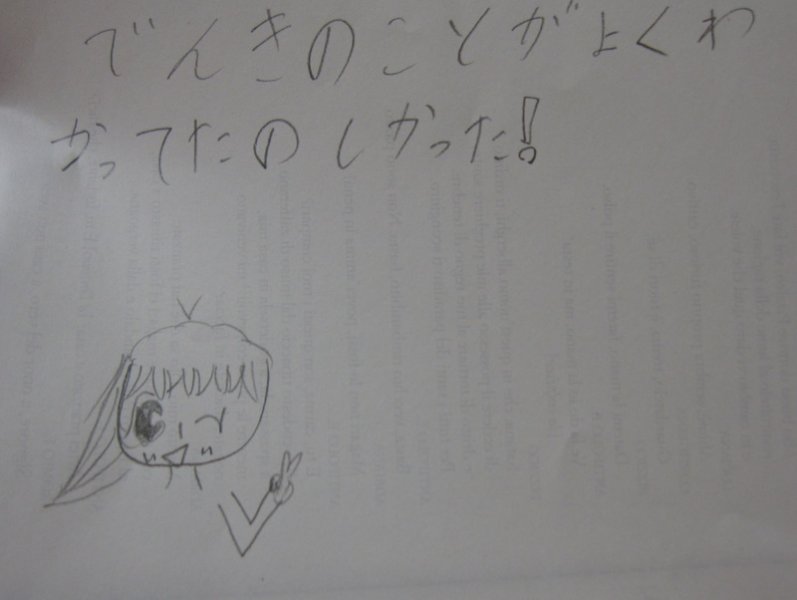 でんきのことがよくわ
かってたのしかった!